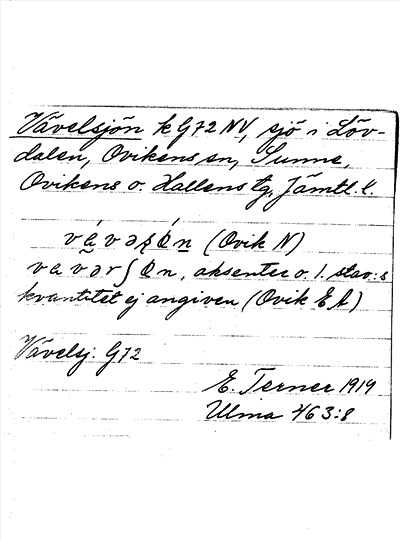 Vävelsjön k G72 NV, sjö i Löv-
dalen, Ovikens sn, Sunne,
Ovikens o. Hallens tg, Jämtl. l.
(Ovik N)
aksenter o. 1. stav:s
kvantitet ej angiven (Ovik EA)
Vävelsj: G72
E. Terner 1919
Ulma 463:8